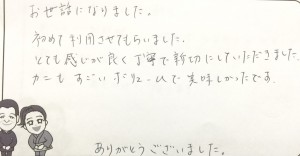 お世話になりました。
初めて利用させてもらいました。
とても感じが良く丁寧で親切にしていただきました。
カニもすごいボリュームで美味しかったです。
ありがとうございました。